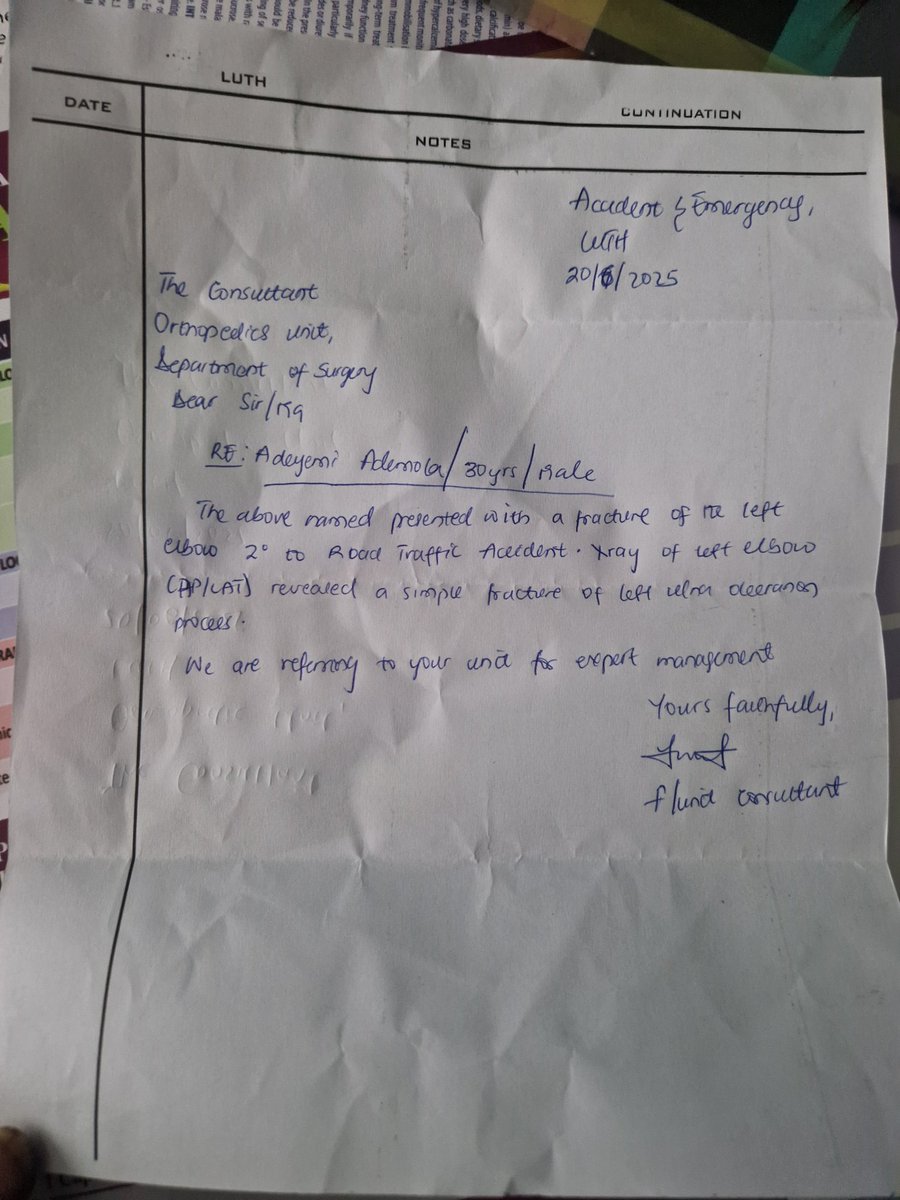 LUTH
CONTINUATION
DATE
NOTES
Accident & Emergency,
LUTH
20/6/2025
The Consultant
Orthopedics unit,
Department of Surgery
Dear Sir/Ma
RE: Adeyemi Ademola/30yrs/Male
The above named presented with a fracture of the left
elbow 2° to Road Traffic Accident. Xray of left elbow
(AP/LAT) revealed a simple fracture of left ulna olecranon
process.
We are referring to your unit for expert management
Yours faithfully,
f/unit consultant